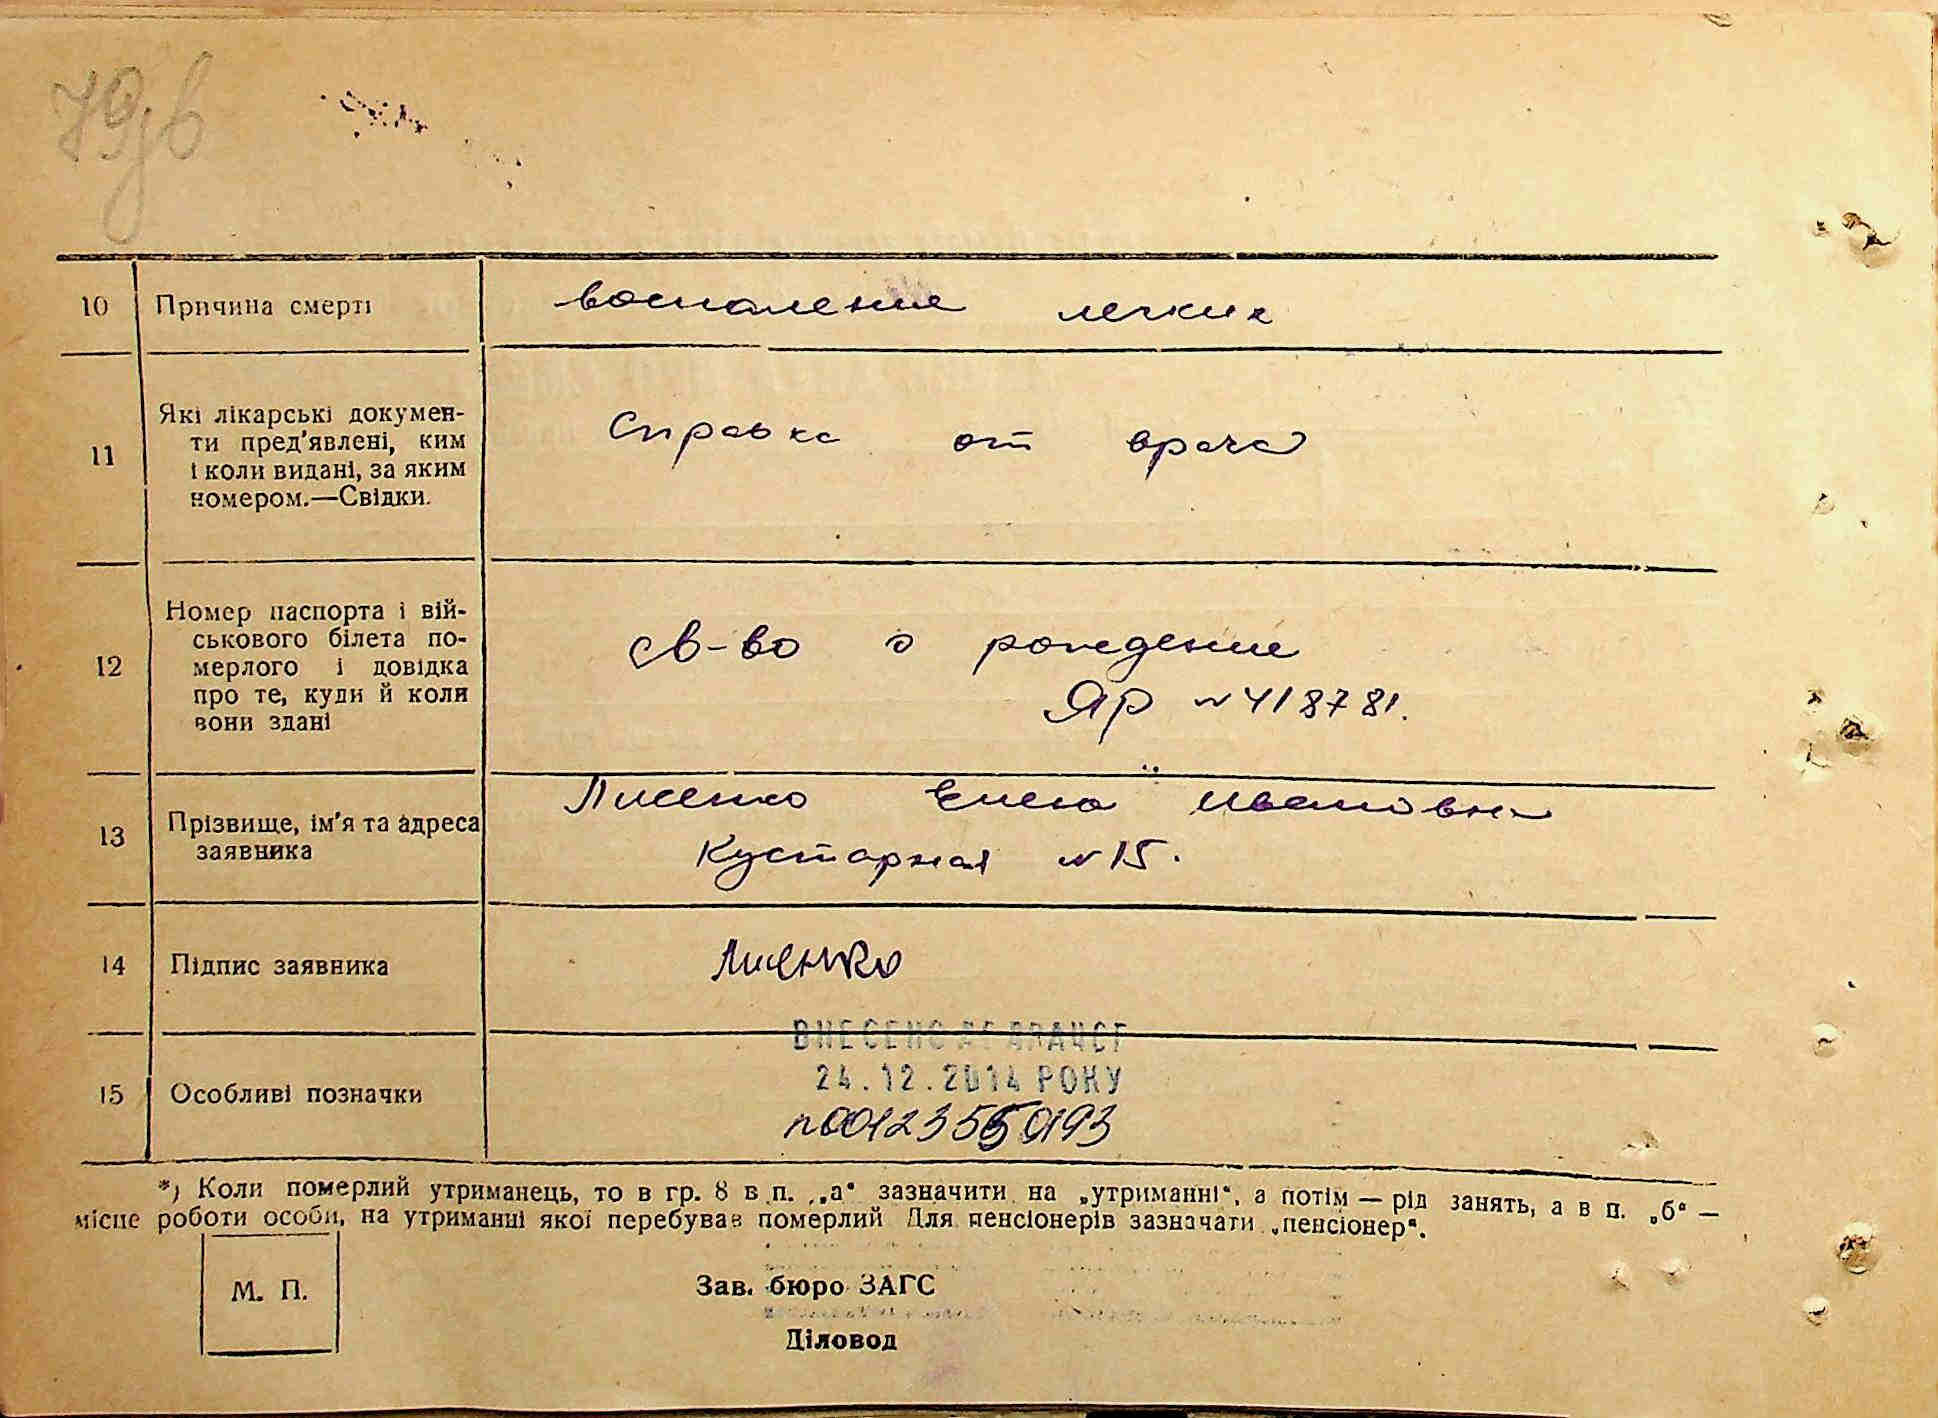 79 в
10 Причина смерті воспаление легких
11 Які лікарські докумен-
ти пред'явлені, ким
і коли видані, за яким
номером.—Свідки.
Справка от врача
12 Номер паспорта і вій-
ськового білета по-
мерлого і довідка
про те, куди й коли
вони здані
св-во о рождение
ЯР № 418781.
13 Прізвище, ім'я та адреса
заявника
Лисенко Елена Ивановна
Кустарная № 15.
14 Підпис заявника Лисенко
15 Особливі позначки
ВНЕСЕНО ДО ДРАЦСГ
24.12.2014 РОКУ
*) Коли померлий утриманець, то в гр. 8 в п. „а“ зазначити на „утриманні“, а потім — рід занять, а в п. „б“ —
місце роботи особи, на утриманні якої перебував померлий Для пенсіонерів зазначати „пенсіонер“.
М. П.
Зав. бюро ЗАГС
Діловод